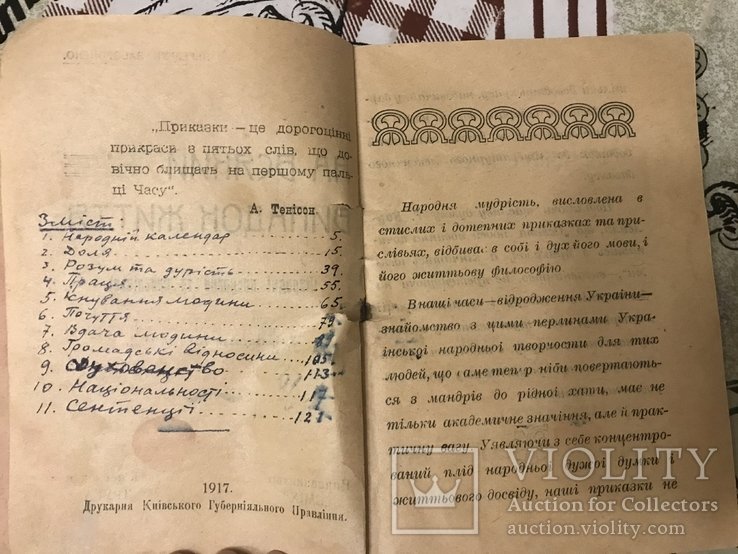 „Приказки — це дорогоцінні
прикраси з пятьох слів, що до-
вічно блищать на першому паль-
ці Часу“.
А. Тенісон
Зміст
1. Народній календар 5.
2. Доля 15.
3. Розум та дурість 39.
4. Праця 55.
5. Існування людини 65.
6. Почуття 79.
7. Вдача людини
8. Громадські відносини 105.
9. Духовенство 113.
10. Національності 117
11. Сентенції 121
1917.
Друкарня Київського Губерніяльного Правління.
Народня мудрість, висловлена в
стислих і дотепних приказках та при-
слівьях, відбива: в собі і дух його мови, і
його життьову філософію
В наші часи—відродження України—
знайомство з цими перлинами Укра-
їнські народньої творчости для тих
людей, що саме теп р ніби повертають-
ся з мандрів до рідної хати, має не
тільки академичне значіння, але й прак-
тичну вагу. Уявляючи з себе концентро-
ваний плід народньої дужої думки і
життьового досвіду, наші приказки не
VIOLITY
Auction for Collectors
auction.violity.com